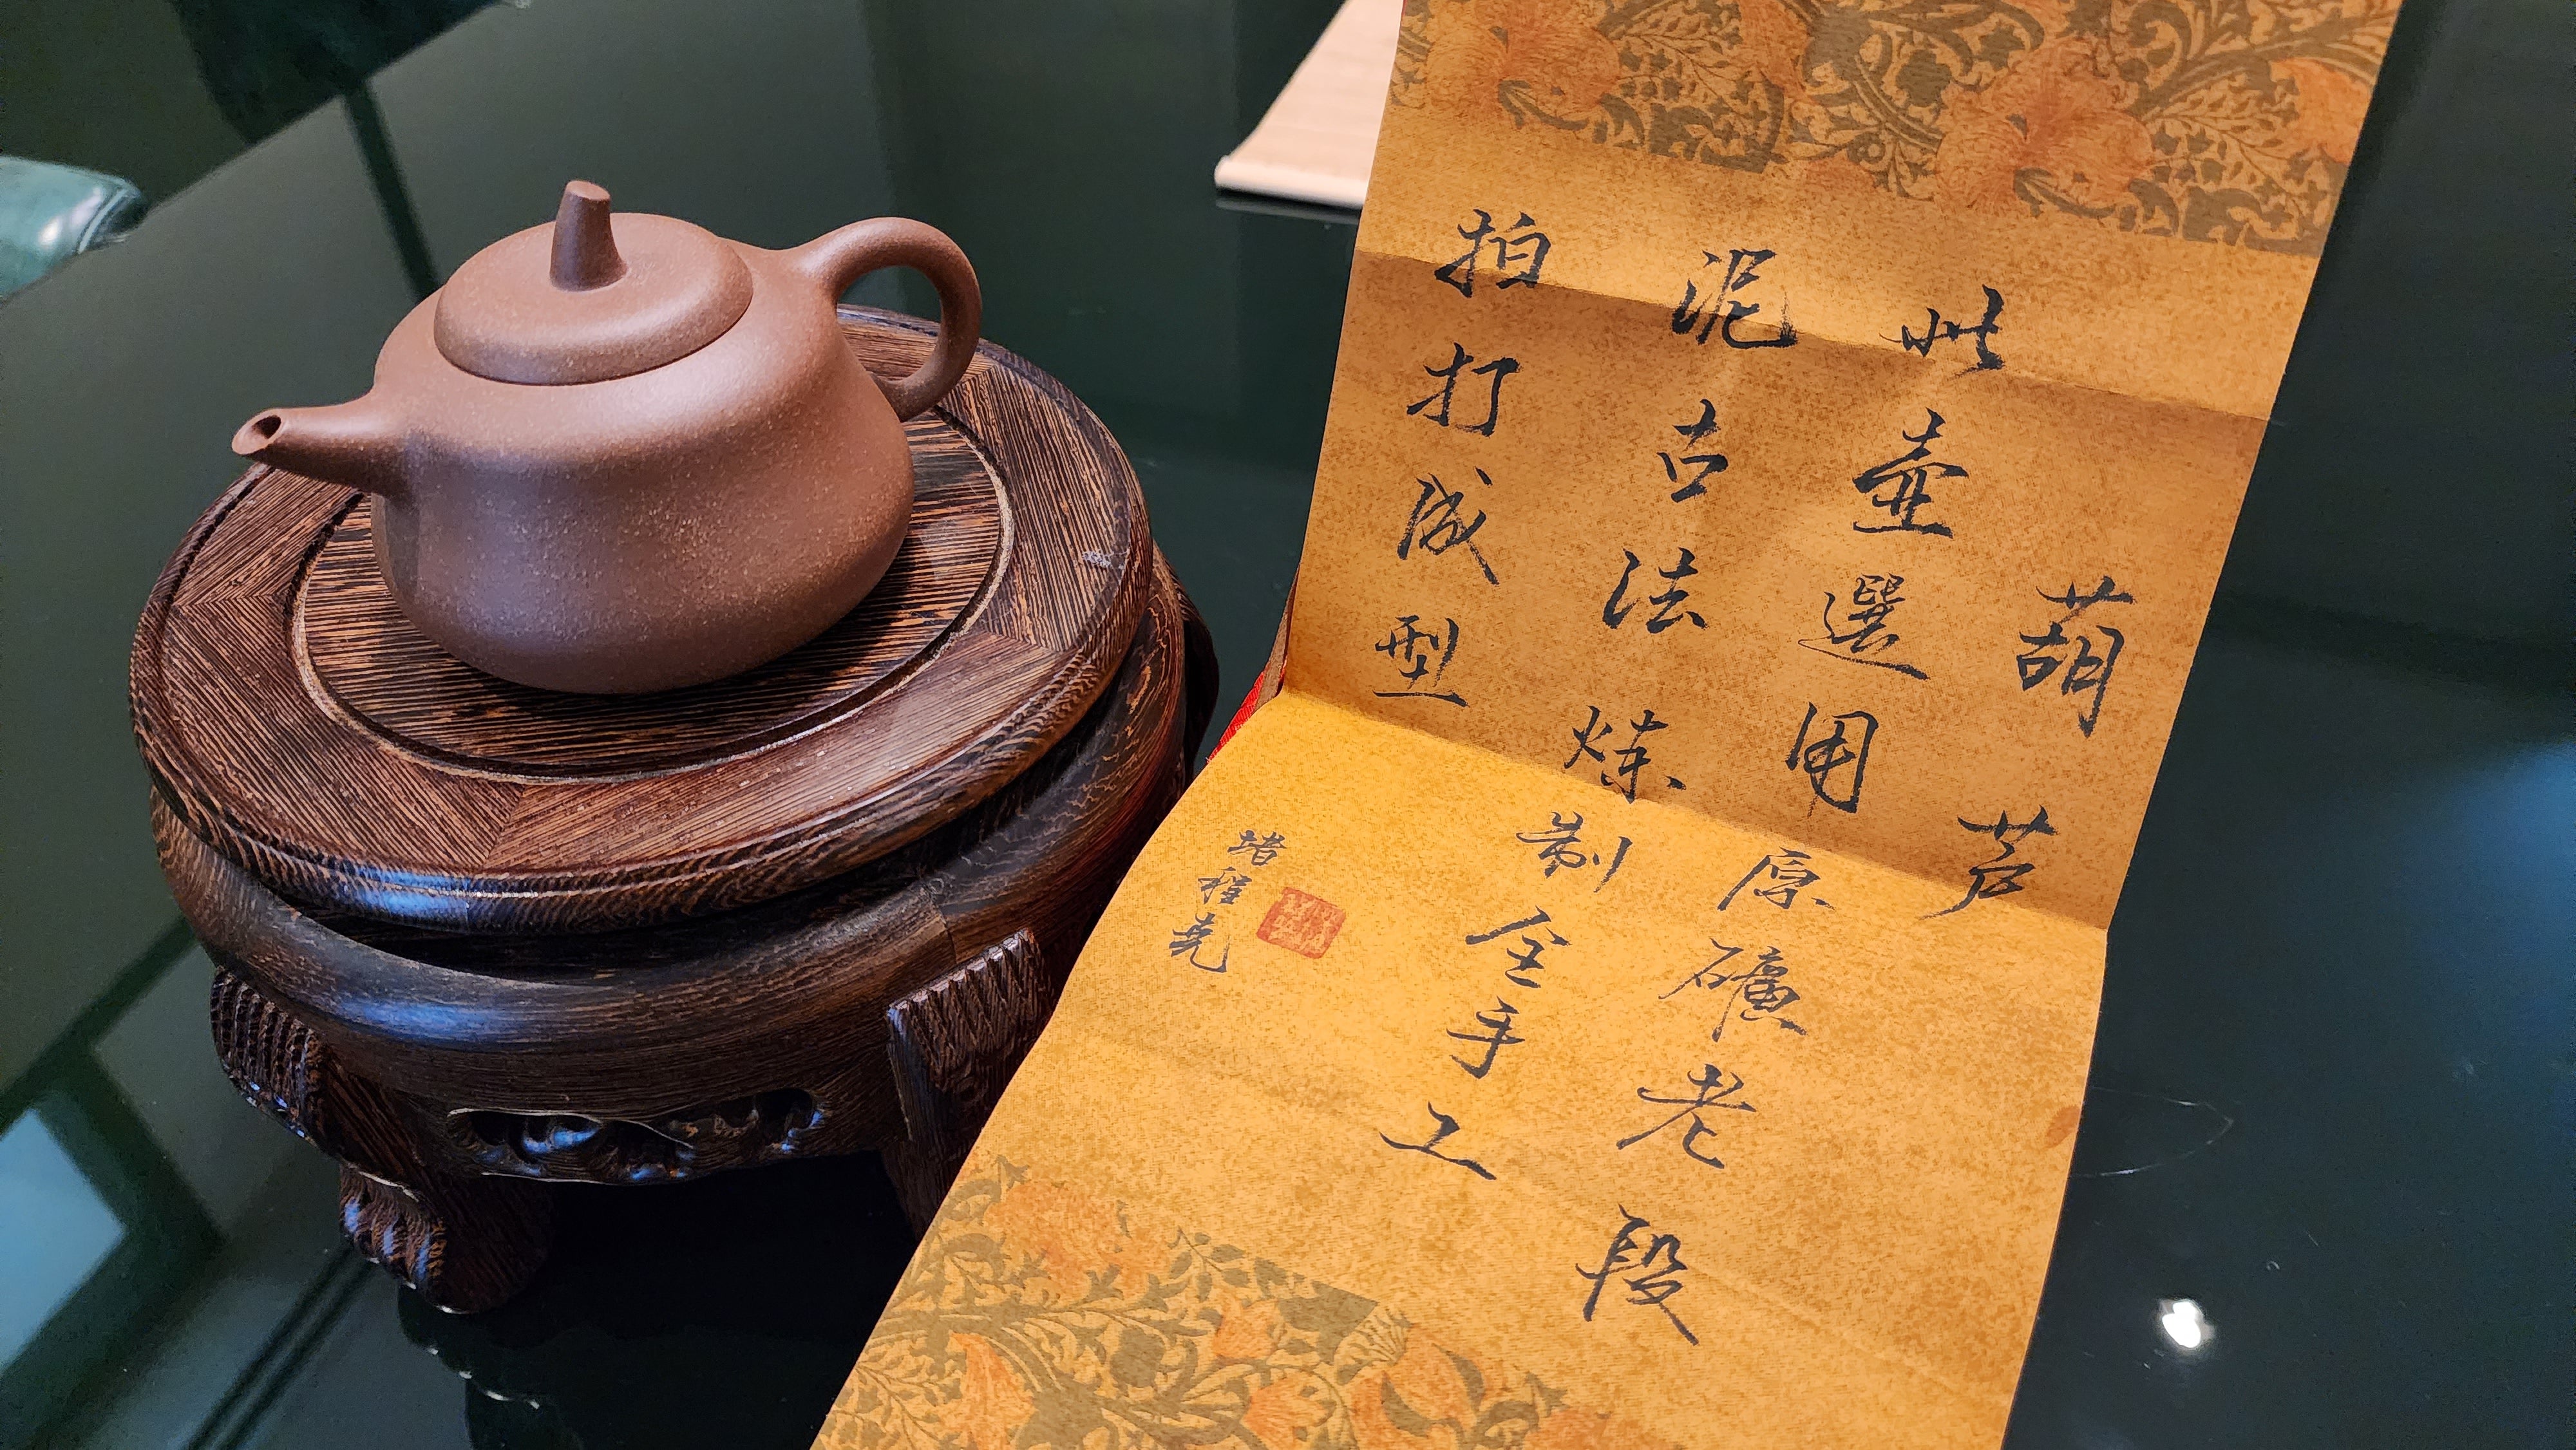 葫芦
此壷選用原礦老段
泥古法炼制全手工
拍打成型
堵程尧